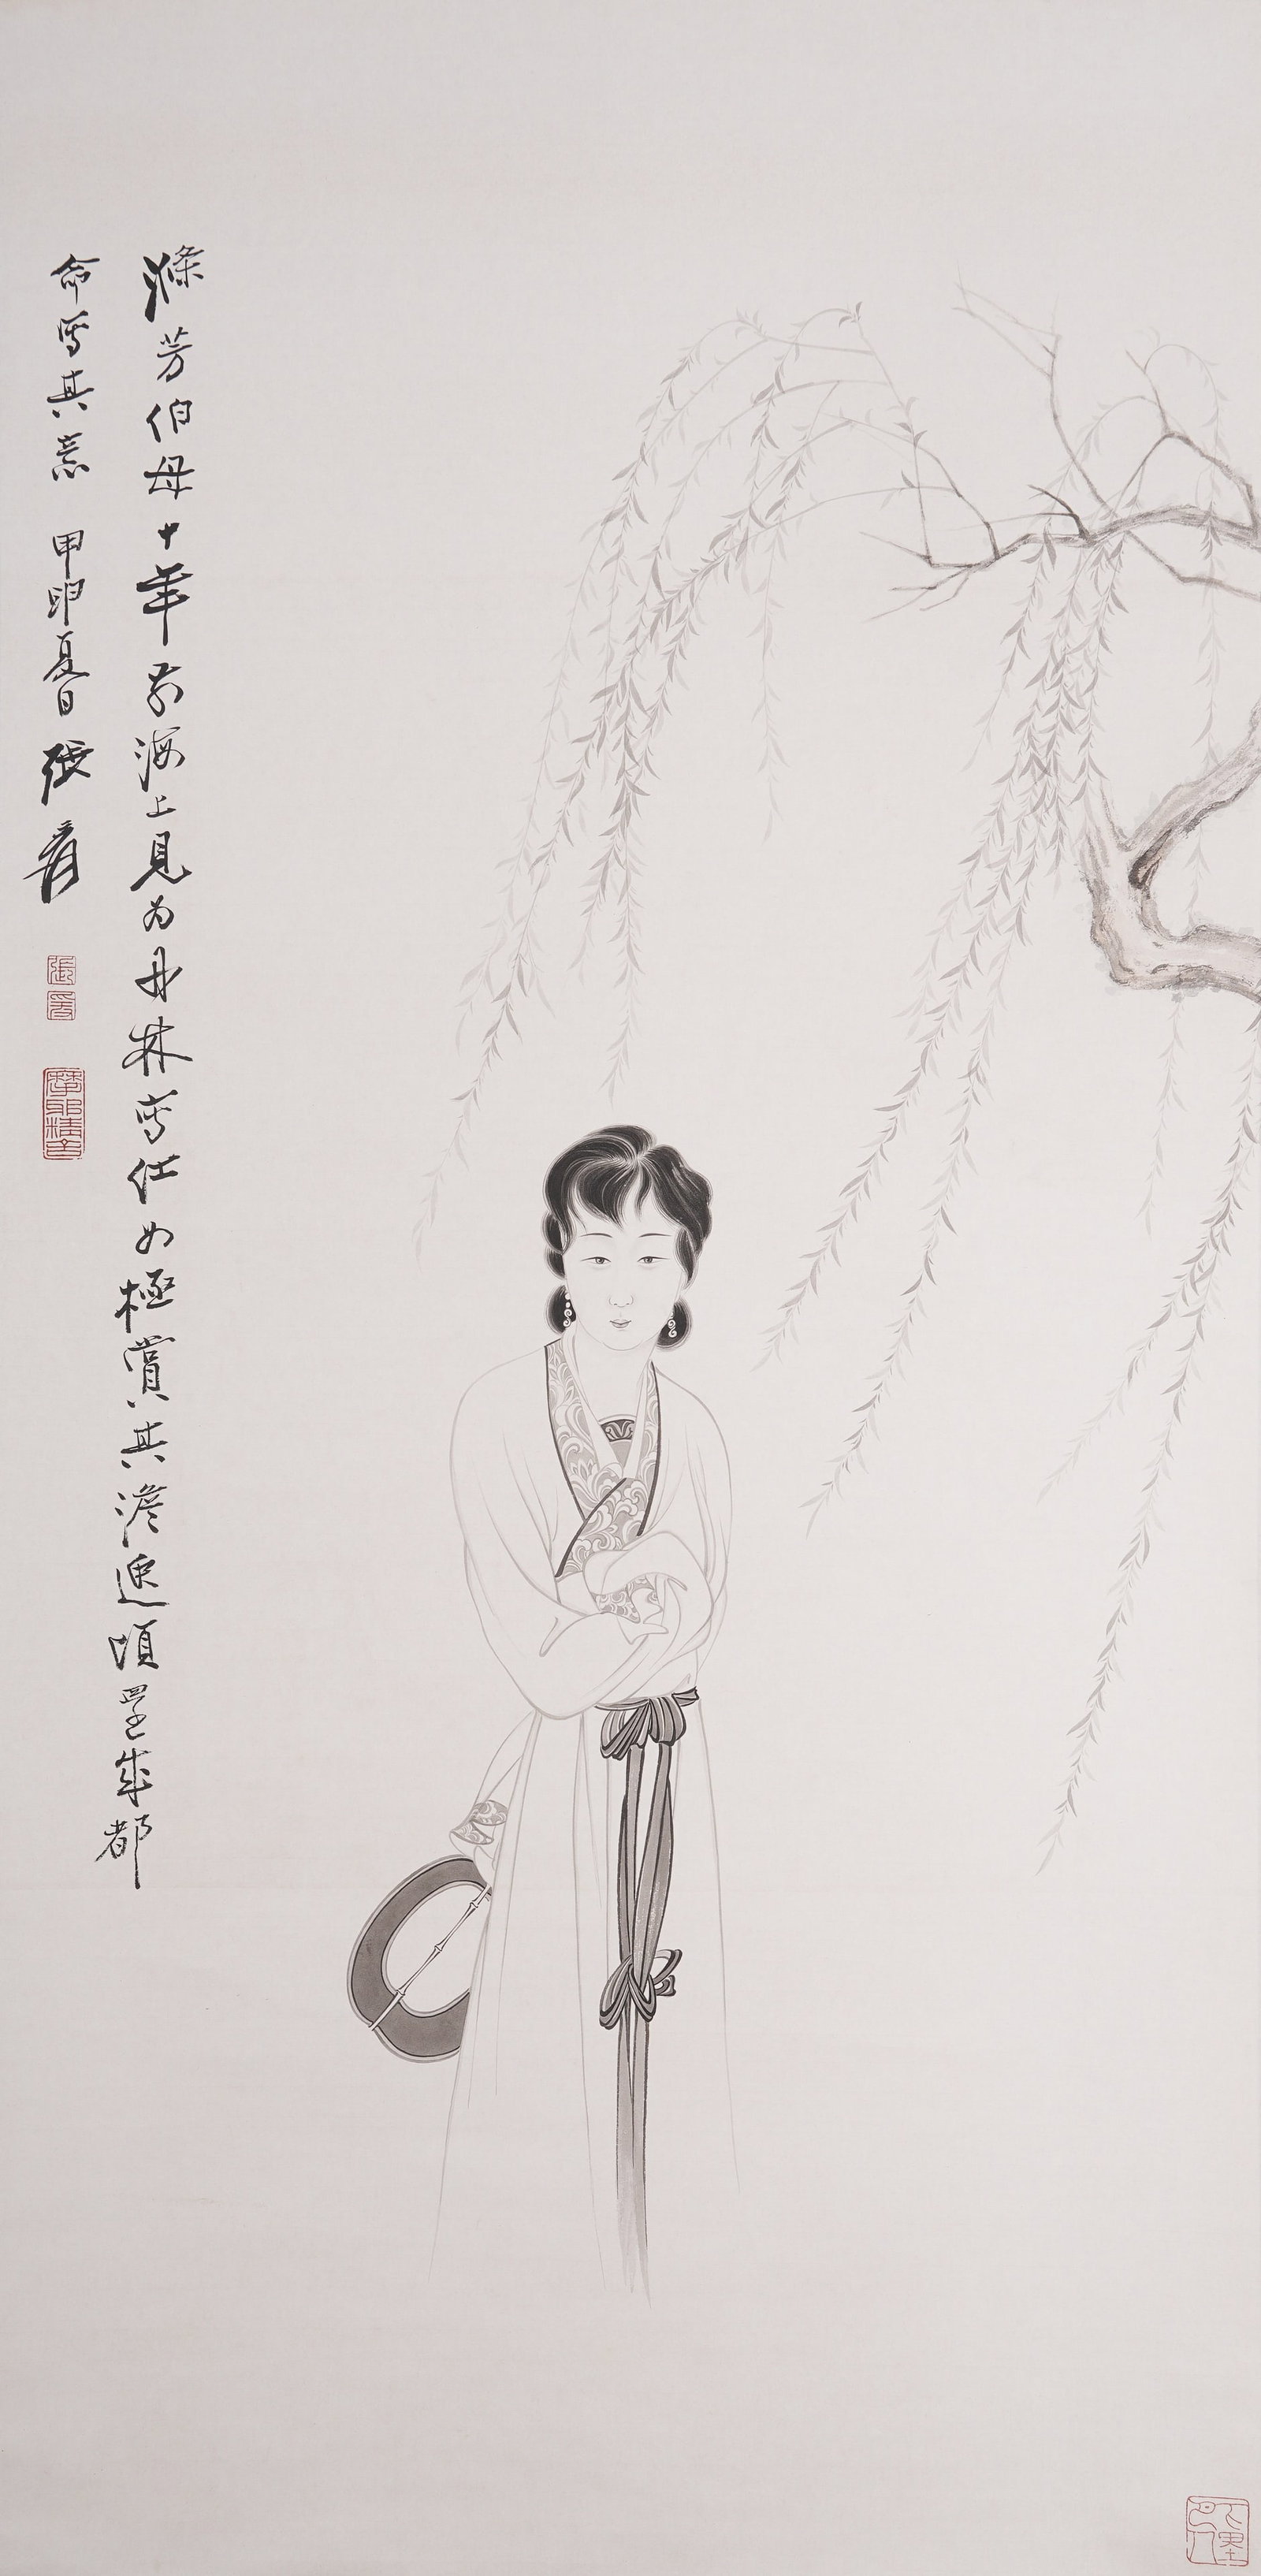 滌芳伯母十年前海上見為丹林寫仕女極賞其澹逸頃壘成都
命寫其意 甲申夏日 張爰
張爰